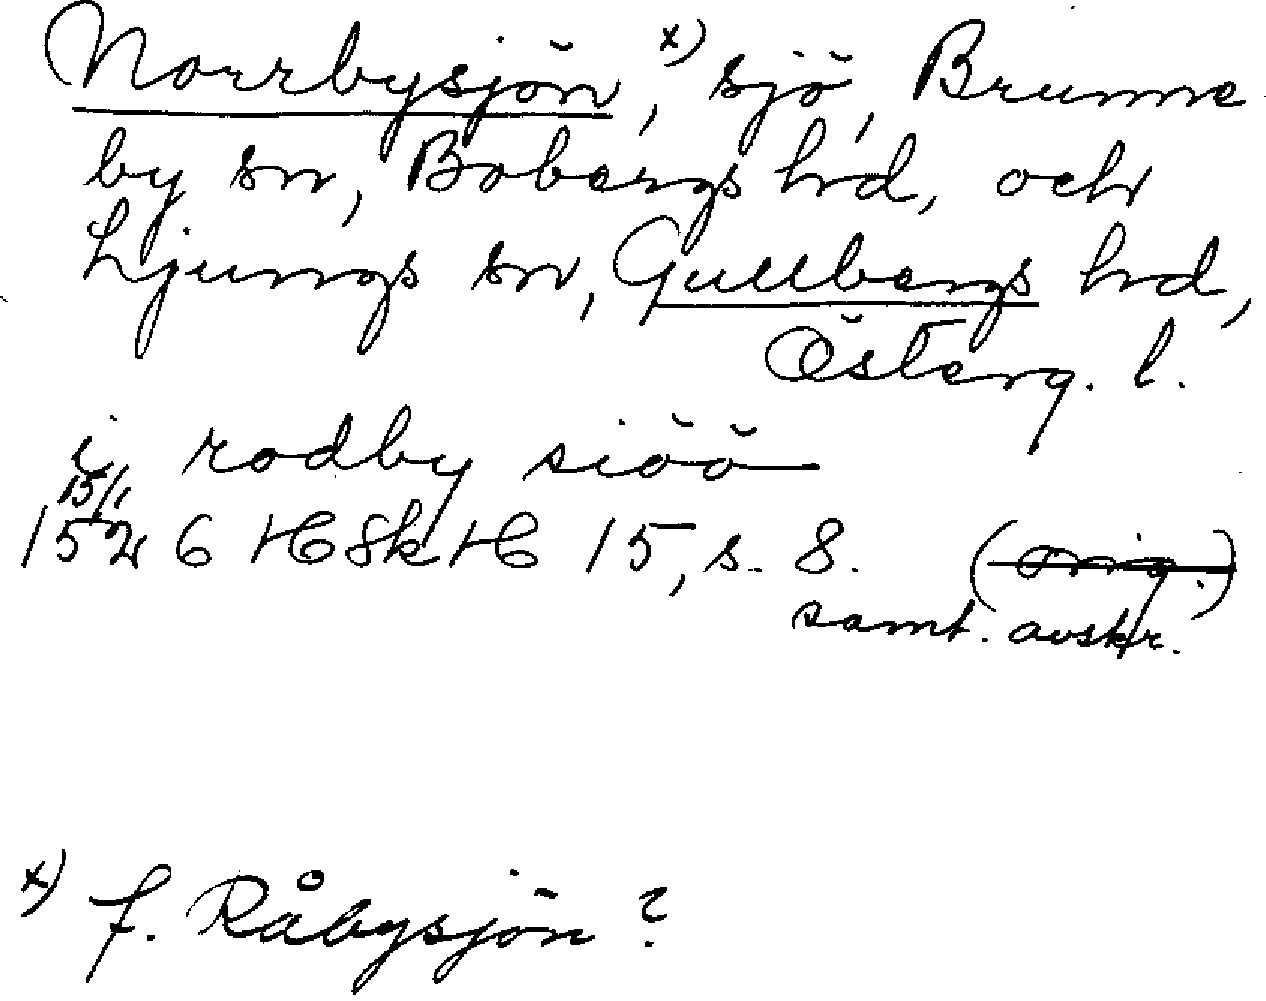 Norrbysjön,ˣ⁾ sjö, Brunne
by sn, Bobergs hd, och
Ljungs sn, Gullbergs hd,
Österg. l.
i rodby siöö
15/1
1526 HSkH 15, s. 8. (orig.)
samt. avskr.
x) f. Råbysjön?